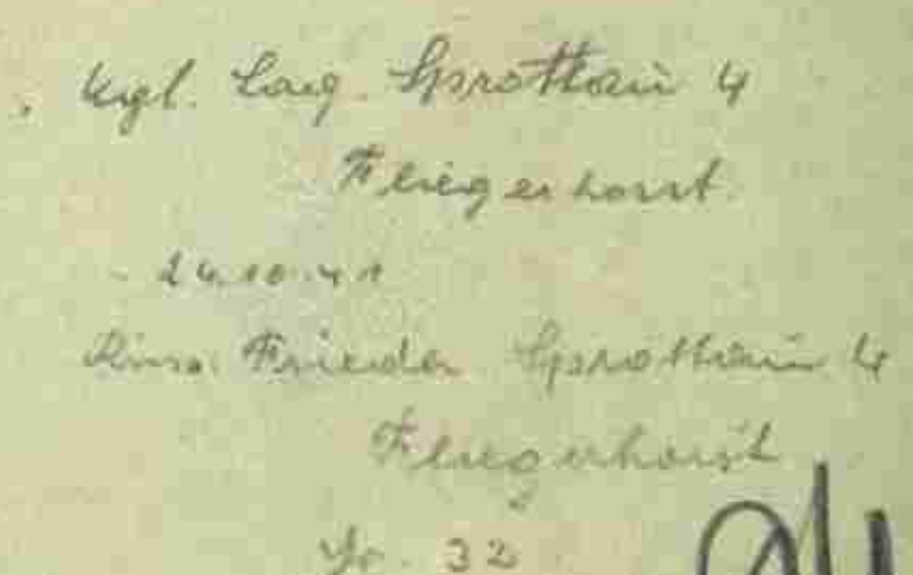 Kgl. Lag. Sprottau 4
Fliegerhorst.
24.10.41
Frieda Sprottau 4
Fliegerhorst
Gr. 32